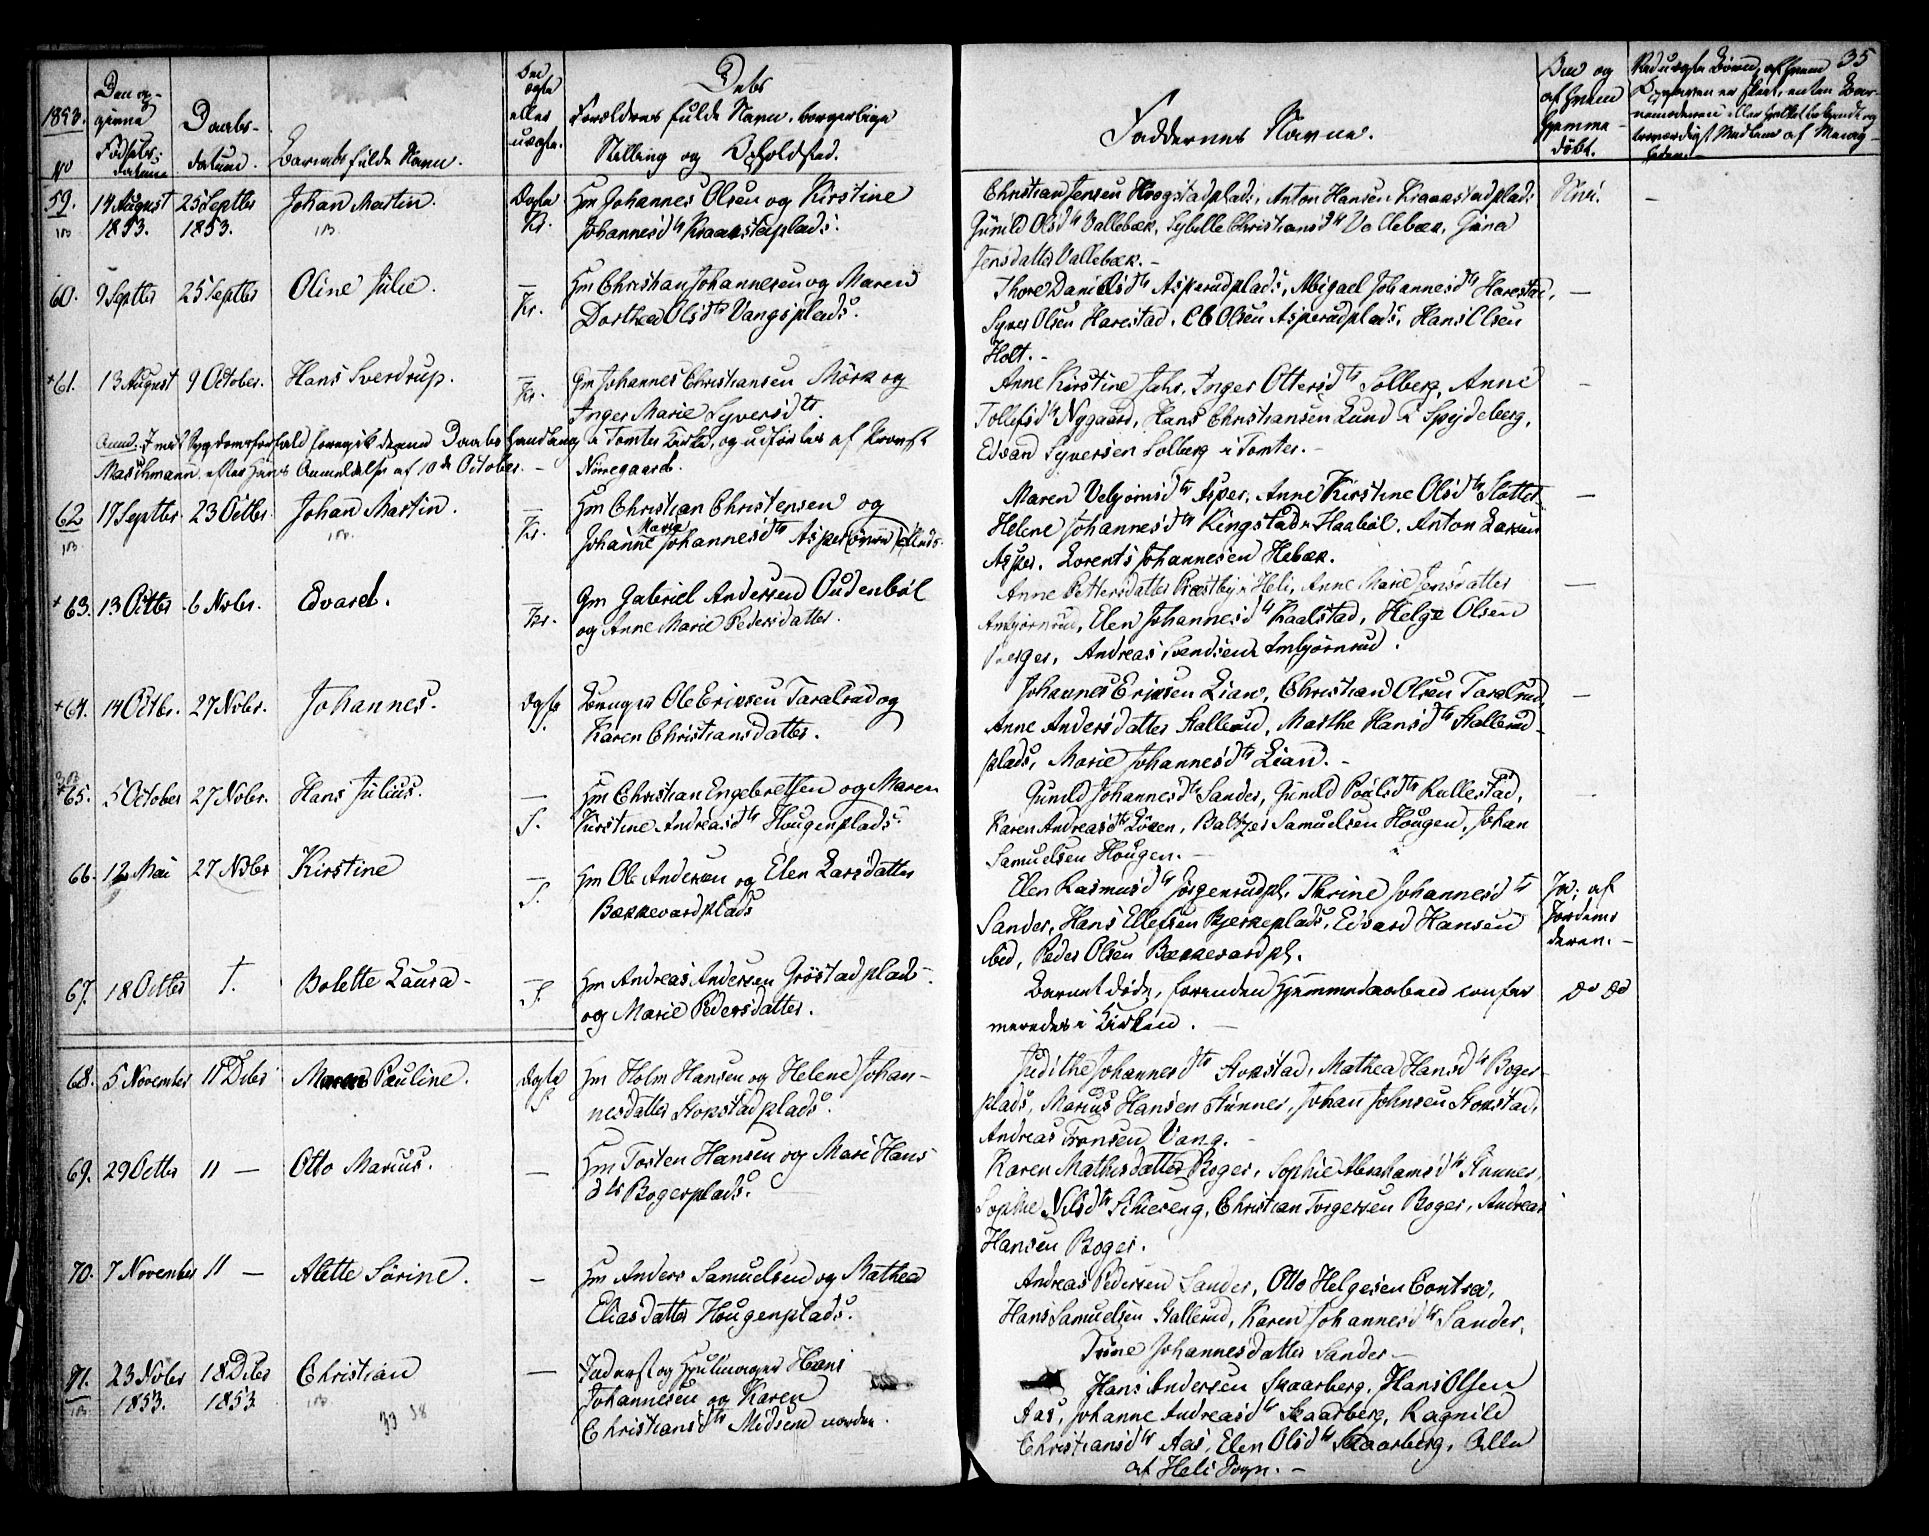 35
1853.
No
Den op-
givne
Fødsels-
datum
Daabs-
datum.
Barnets fulde Navn.
Om
ægte
eller
uægte.
Dets
Forældres fulde Navn, borgerlige
Stilling og Opholdsted.
Faddernes Navne.
Om og
af hvem
hjemme-
døbt.
59. 14 August 25 Septbr Johan Martin. Ægte Hm Johannes Olsen og Kirstine
1853. 1853. Kr. Johannesd tr plads.
Christian Jensen plads, Anton Hansen plads
Gunild Olsd tr Vallebæk, Sybille Christiansd tr Vallebæk, Gina
Jensdatter Vallebæk. -
Nei.
60. 9 Septbr 25 Septbr Oline Julie. — Hm Christian Johannesen og Maren
Kr. Dorthea Olsd tr Vangsplads.
Thore Danielsd tr Asperudplads, Abigael Johannesd tr Harestad,
Syver Olsen Harestad, Ole Olsen Asperudplads, Hans Olsen
Holt. -
+61. 13 August 9 October. Hans Sverdrup. — Gm Johannes Christiansen Mørk og
Kr. Inger Marie Syversd tr.
Anne Kirstine Jahr, Inger Ottersd tr Solberg, Anne
Tollefsd tr Nygaard, Hans Christiansen Lund i Spydeberg,
Edvard Syversen Solberg i Tomter. -
Anm. I mit Sygdomsforfald foregik denne Daabshandling i Tomter Kirke, og udførtes af Provst
Maschmann efter hans Anmeldelse af 10de October. - Nørregaard.
62 17 Septbr 23 Octbr Johan Martin. — Hm Christian Christensen og
Kr. Johanne Maria Johannesd tr Asper plads.
Maren Vebjørnsd tr Asper, Anne Kirstine Olsd tr Slottet
Helene Johannesd tr Ringstad Haabøl, Anton Larsen
Asper, Lorents Johannesen Hebæk.
+63. 13 Octbr 6 Novbr. Edvard. — Gm Gabriel Andersen Oudenbøl
Kr. og Anne Marie Pedersdatter.
Anne Pettersdatter Præstby i Heli, Anne Marie Jensdatter
Ambjørnrud, Elen Johannesd tr Kaalstad, Helge Olsen
Berger, Andreas Svendsen Ambjørnrud.
+64. 14 Octbr. 27 Novbr. Johannes. Ægte Bruger Ole Eriksen Taralrud og
S. Karen Christiansdatter.
Johannes Eriksen Lian, Christian Olsen Taralrud,
Anne Andersdatter Stallerud, Marthe Hansd tr Stallerud-
plads, Marie Johannesd tr Lian. -
65. 5 October 27 Novbr. Hans Julius. — Hm Christian Engebretsen og Maren
S. Kirstine Andreasd tr Hougenplads.
Gunild Johannesd tr Sander, Gunild Paulsd tr Kullestad,
Karen Andreasd tr Løken, Baltzer Samuelsen Hougen, Johan
Samuelsen Hougen. -
66. 12 Mai 27 Novbr Kirstine — Hm Ole Andersen og Elen Larsdatter
S. Bækkevardplads
Elen Rasmusd tr Jørgenrudpl, Thrine Johannesd tr
Sander, Hans Ellefsen Bjerkeplads, Edvard Hansen
ibid, Peder Olsen Bækkevardpl.
Ja; af
Jordemo
deren. -
67. 18 Octbr †. Bolette Laura - — Hm Andreas Andersen Grøstadplads
S. og Marie Pedersdatter.
Barnet døde, forinden Hjemmedaaben confir
meredes i Kirken. -
do do
68. 5 November 11 Debr Maren Pauline. Ægte Hm Holm Hansen og Helene Johan-
S. nesdatter Stokstadplads.
Judithe Johannesd tr Stokstad, Mathea Hansd tr Boger-
plads, Marius Hansen Stunner, Johan Johnsen Stokstad,
Andreas Tronsen Vang. -
69. 29 Octbr 11 — Otto Marius. — Hm Torsten Hansen og Mari Hans
d tr Bogerplads.
Karen Mathisdatter Boger, Sophie Abrahamsd tr Stunner,
Sophie Nilsd tr, Christian Torgersen Boger, Andreas
Hansen Boger.
70. 7 November 11 — Alette Sørine. — Hm Anders Samuelsen og Mathea
Eliasdatter Hougenplads.
Andreas Pedersen Sander, Otto Helgesen Contra,
Hans Samuelsen Stallerud, Karen Johannesd tr Sander,
Trine Johannesdatter Sander -
71. 23 Novbr 18 Debr Christian — Inderst og Hjulmager Hans
1853. 1853 Johannesen og Karen
Christiansd tr Midsem nordre.
33 38
Hans Andersen Skaarberg, Hans Olsen
Aas, Johanne Andreasd tr Skaarberg, Ragnild
Christiansd tr Aas, Elen Olsd tr Skaarberg, Alle
af Heli Sogn. -